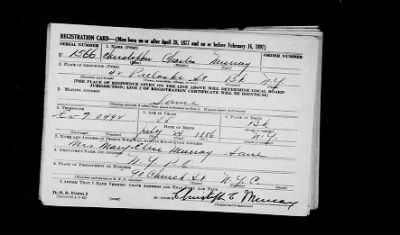 REGISTRATION CARD—(Men born on or after April 28, 1877 and on or before February 16, 1897)
SERIAL NUMBER
1. NAME (Print)
U 1566 Christopher Charles Murray
(First) (Middle) (Last)
2. PLACE OF RESIDENCE (Print)
42 St Bk N.Y.
(Number and street) (Town, township, village, or city) (County) (State)
[THE PLACE OF RESIDENCE GIVEN ON THE LINE ABOVE WILL DETERMINE LOCAL BOARD
JURISDICTION; LINE 2 OF REGISTRATION CERTIFICATE WILL BE IDENTICAL]
3. MAILING ADDRESS
Same
4. TELEPHONE
5. AGE IN YEARS
6. PLACE OF BIRTH
Bk
DATE OF BIRTH
July 1886 N.Y.
7. NAME AND ADDRESS OF PERSON WHO WILL ALWAYS KNOW YOUR ADDRESS
Mrs Mary Murray Same
8. EMPLOYER'S NAME AND ADDRESS
N.Y. P.O
9. PLACE OF EMPLOYMENT OR BUSINESS
90 Church St N.Y.C.
I AFFIRM THAT I HAVE VERIFIED ABOVE ANSWERS AND THAT THEY ARE TRUE.
D. S. S. Form 1
Christoph C Murray